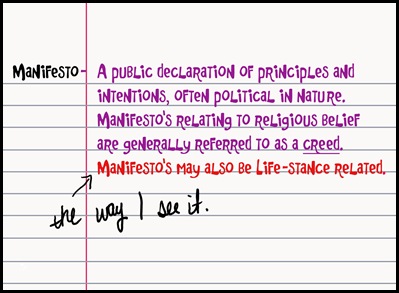 Manifesto- A public declaration of principles and
intentions, often political in nature.
Manifesto's relating to religious belief
are generally referred to as a creed.
Manifesto's may also be life-stance related.
the way I see it.